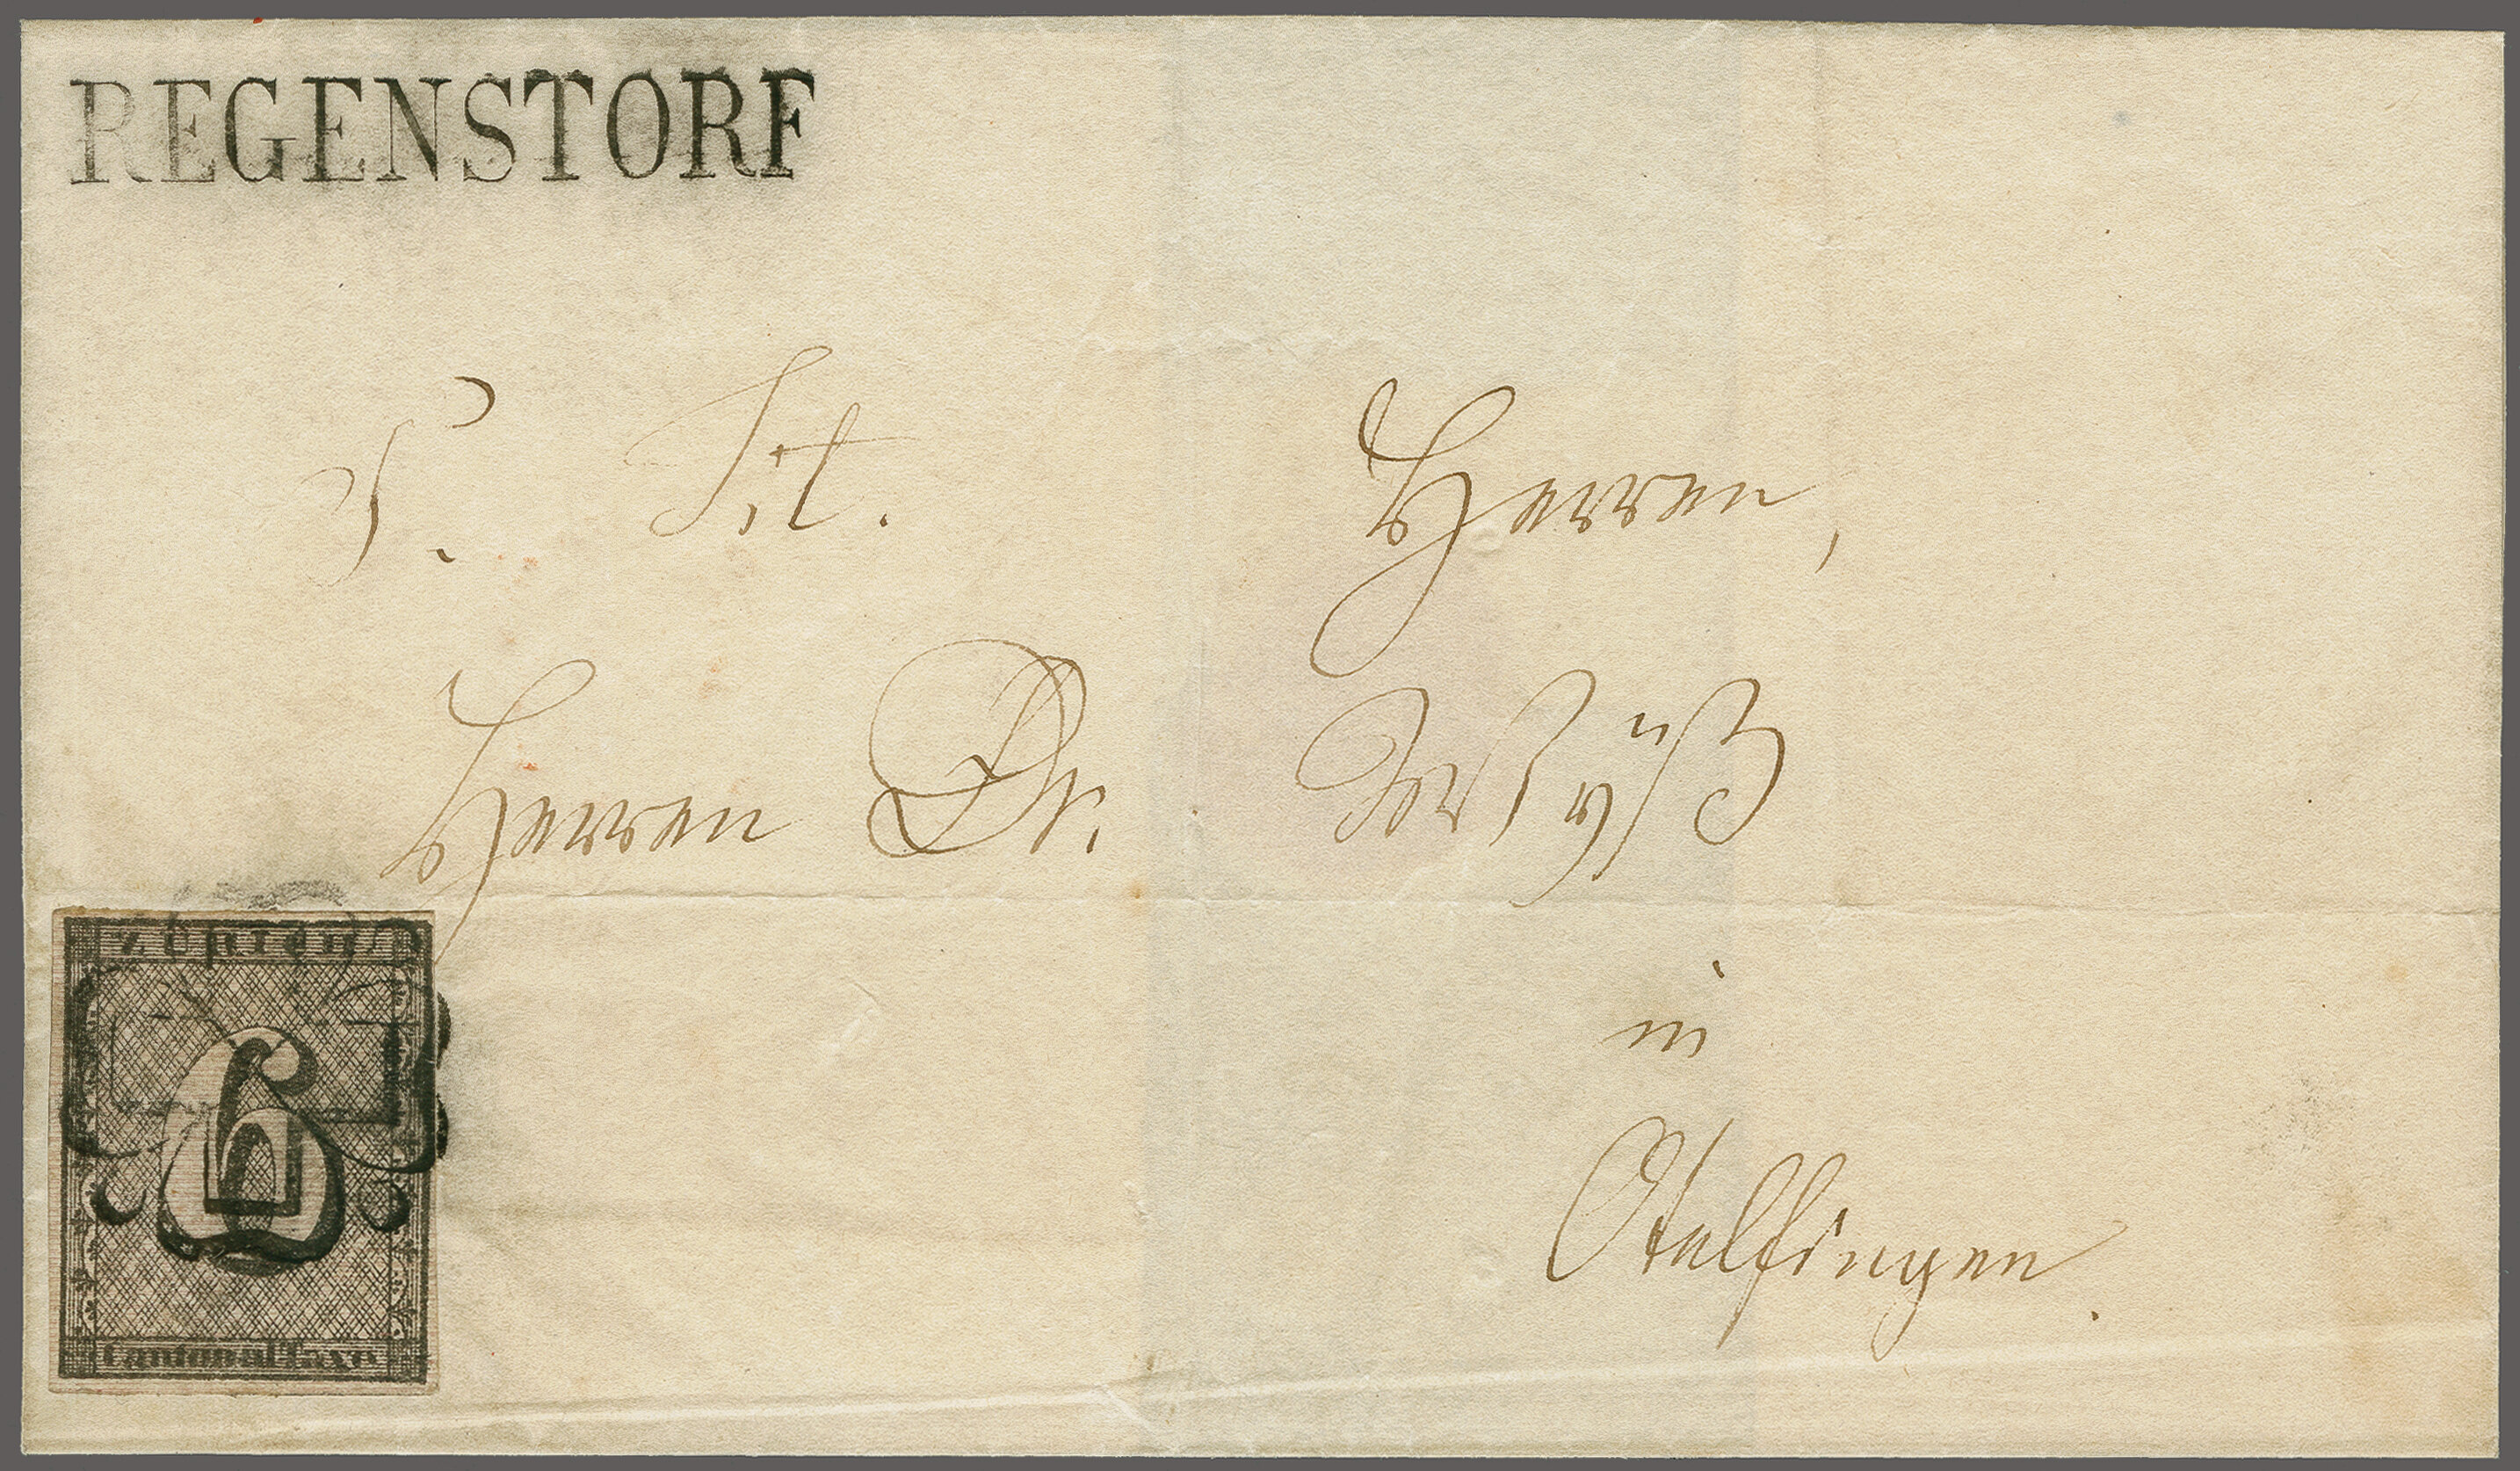 REGENSTORF
P. Tit. Herren,
Herren Dr. Wÿß
in
Otelfingen.
ZÜRICH
6
Cantonal Taxe